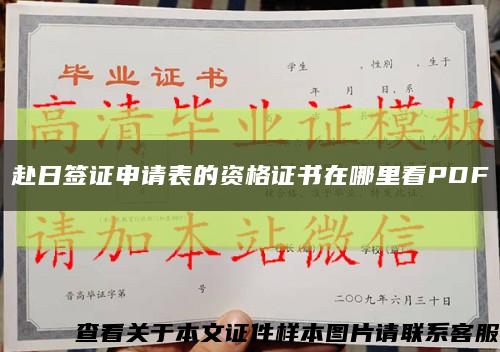 毕业证书
学生 ，性别 ，生于
年 月 日、系
高清毕业证模板
赴日签证申请表的资格证书在哪里看PDF
请加本站微信
学校(章)
晋高毕证字第 号
二○○九年六月三十日
查看关于本文证件样本图片请联系客服